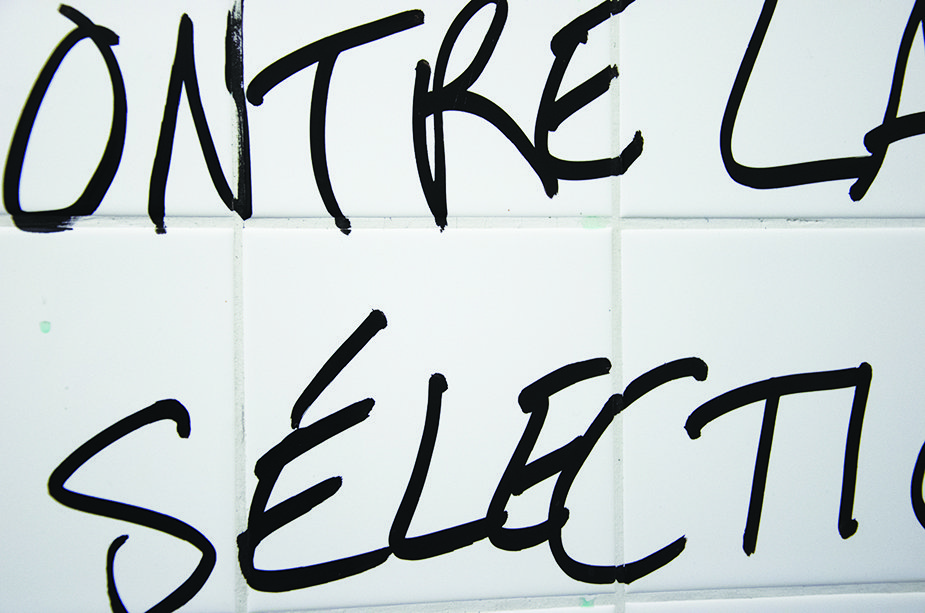 ONTRE LA
SÉLECTIO